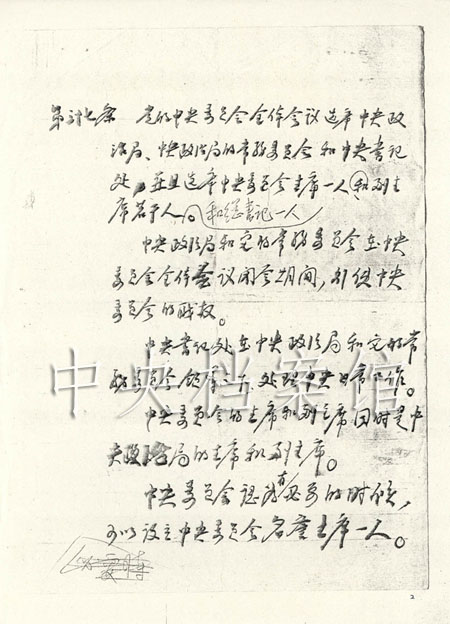 第三十七条 党的中央委员会全体会议选举中央政
治局、中央政治局的常务委员会和中央书记
处,并且选举中央委员会主席一人和副主
席若干人。和总书记一人
中央政治局和它的常务委员会在中央
委员会全体会议闭会期间,行使中央
委员会的职权。
中央书记处在中央政治局和它的常
务委员会领导之下,处理中央日常工作。
中央委员会的主席和副主席同时是中
央政治局的主席和副主席。
中央委员会认为有必要的时候,
可以设立中央委员会名誉主席一人。
中央档案馆
2